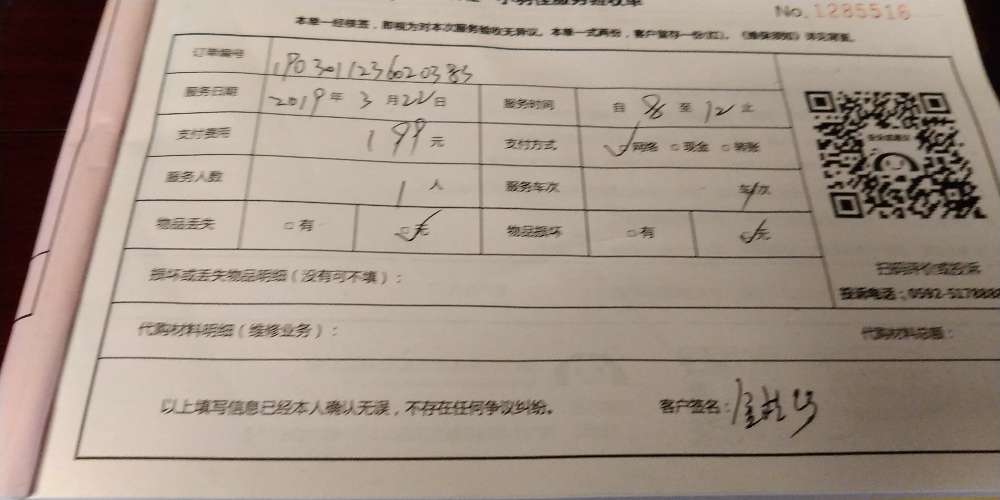 No.1285516
本单一经接签，即视为对本次服务验收无异议。本单一式两份，客户留存一份(红)。《维保须知》详见背面。
订单编号
服务日期 2019年 3月22日 服务时间 自 8 至 12 止
支付费用 199元 支付方式 网络 现金 转账
服务人数 1 人 服务车次 车/次
物品丢失 有 无 物品损坏 有 无
损坏或丢失物品明细（没有可不填）：
扫码评价或投诉
投诉电话：0592-5178888
代购材料明细（维修业务）： 代购材料总额：
以上填写信息已经本人确认无误，不存在任何争议纠纷。 客户签名：